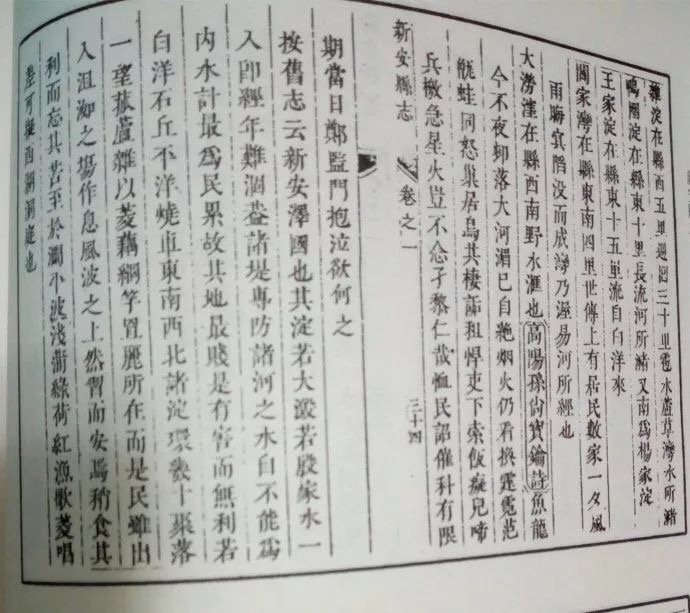 雜淀在縣西五里週迴三十里雹水蘆草灣水所豬
鴨圈淀在縣東十里長流河所豬又南爲楊家淀
王家淀在縣東十五里流自白洋來
閻家灣在縣東南四里世傳上有居民數家一夕風
雨晦冥陷没而成灣乃渥易河所經也
大澇淀在縣西南野水滙也高陽孫尙寶鑰詩魚龍
今不夜郭落大河湄已自絶烟火仍看換霆霓芭
蛙同怒巢居鳥其棲詬租悍吏下索飯癡兒啼
兵檄急星火豈不念孑黎仁哉恤民詔催科有限
新安縣志
卷之一
三十四
期當日鄭監門抱泣欲何之
按舊志云新安澤國也其淀若大溵若殷家水一
入卽經年難涸葢諸堤專防諸河之水自不能爲
内水計最爲民累故其地最賤是有害而無利若
白洋石丘不洋燒車東南西北諸淀環幾十聚落
一望菰蘆雜以菱藕綱竿罝麗所在而是民雖出
入沮洳之場作息風波之上然習而安焉稍食其
利而忘其苦至於瀾小波淺蘅綠荷紅漁歌菱唱
差可擬西湖洞庭也